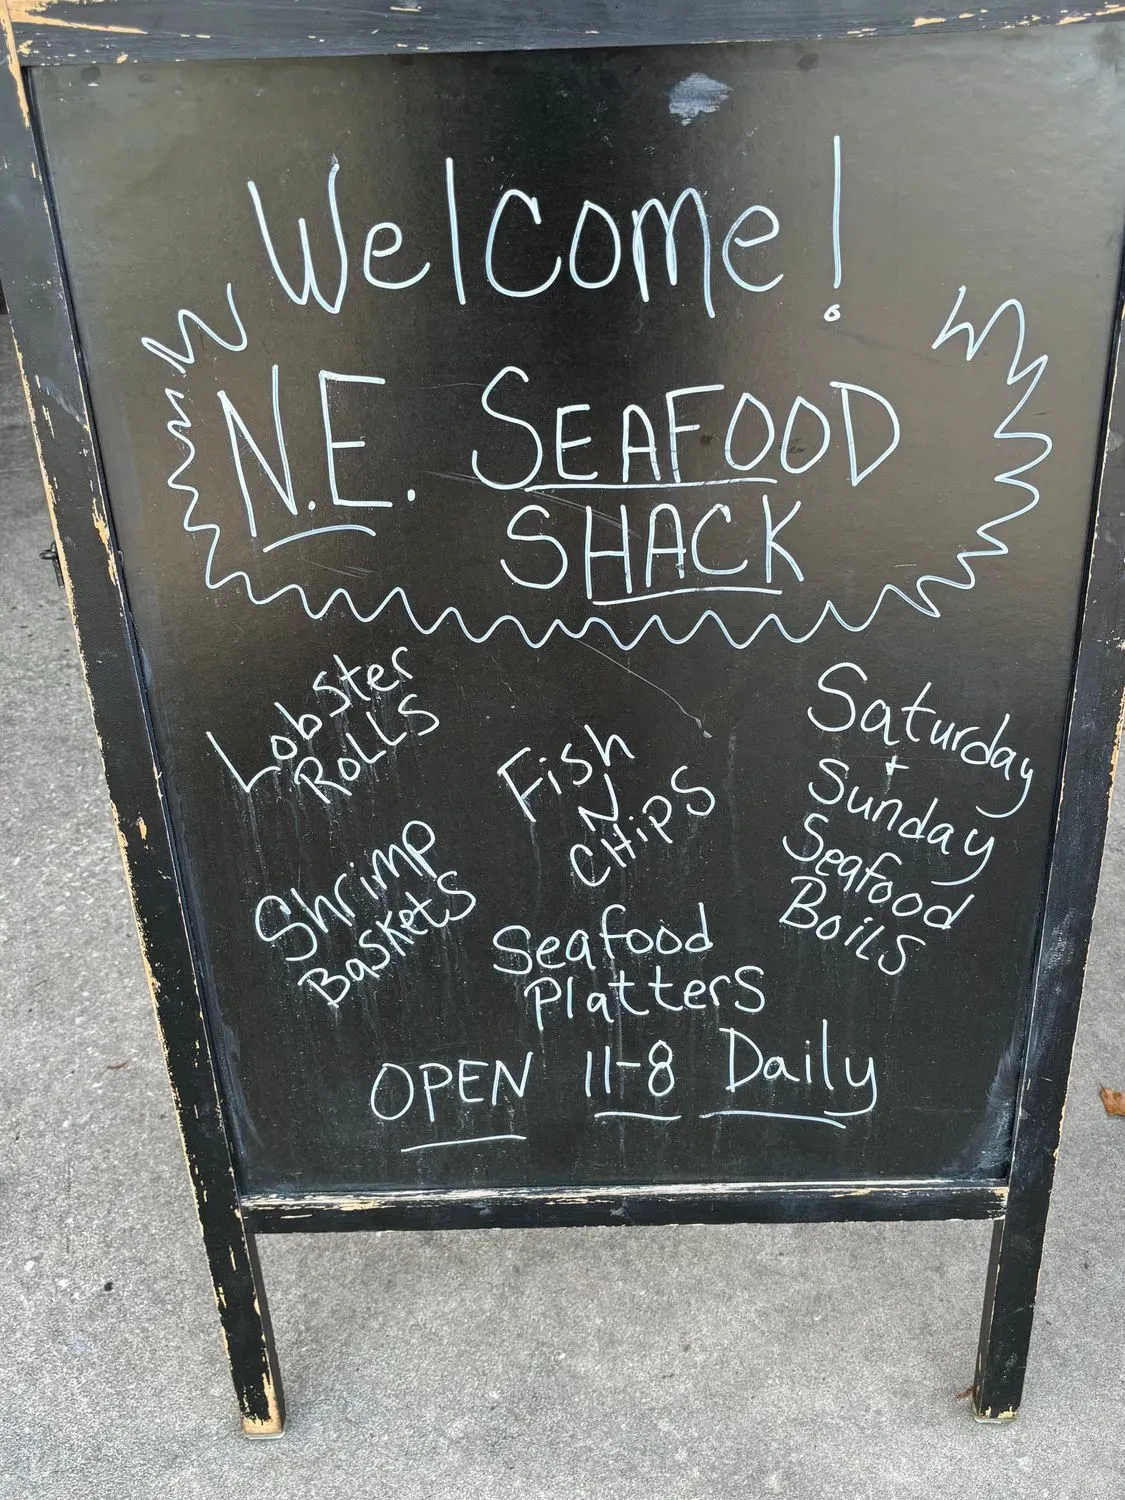 Welcome!
N.E. SEAFOOD
SHACK
Lobster
ROLLS
Shrimp
BASKETS
Fish
N
CHIPS
Seafood
PlatterS
Saturday
+
Sunday
Seafood
BoilS
OPEN 11-8 Daily